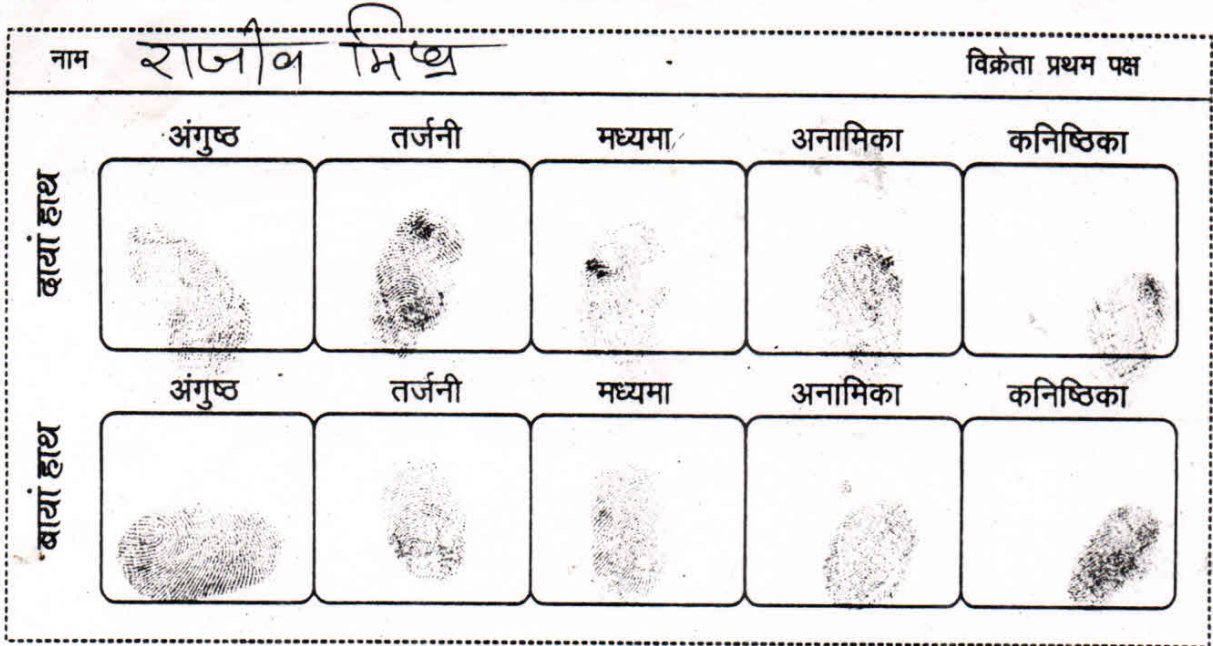 नाम राजीव मिश्र विक्रेता प्रथम पक्ष
अंगुष्ठ तर्जनी मध्यमा अनामिका कनिष्ठिका
दायां हाथ
अंगुष्ठ तर्जनी मध्यमा अनामिका कनिष्ठिका
बायां हाथ